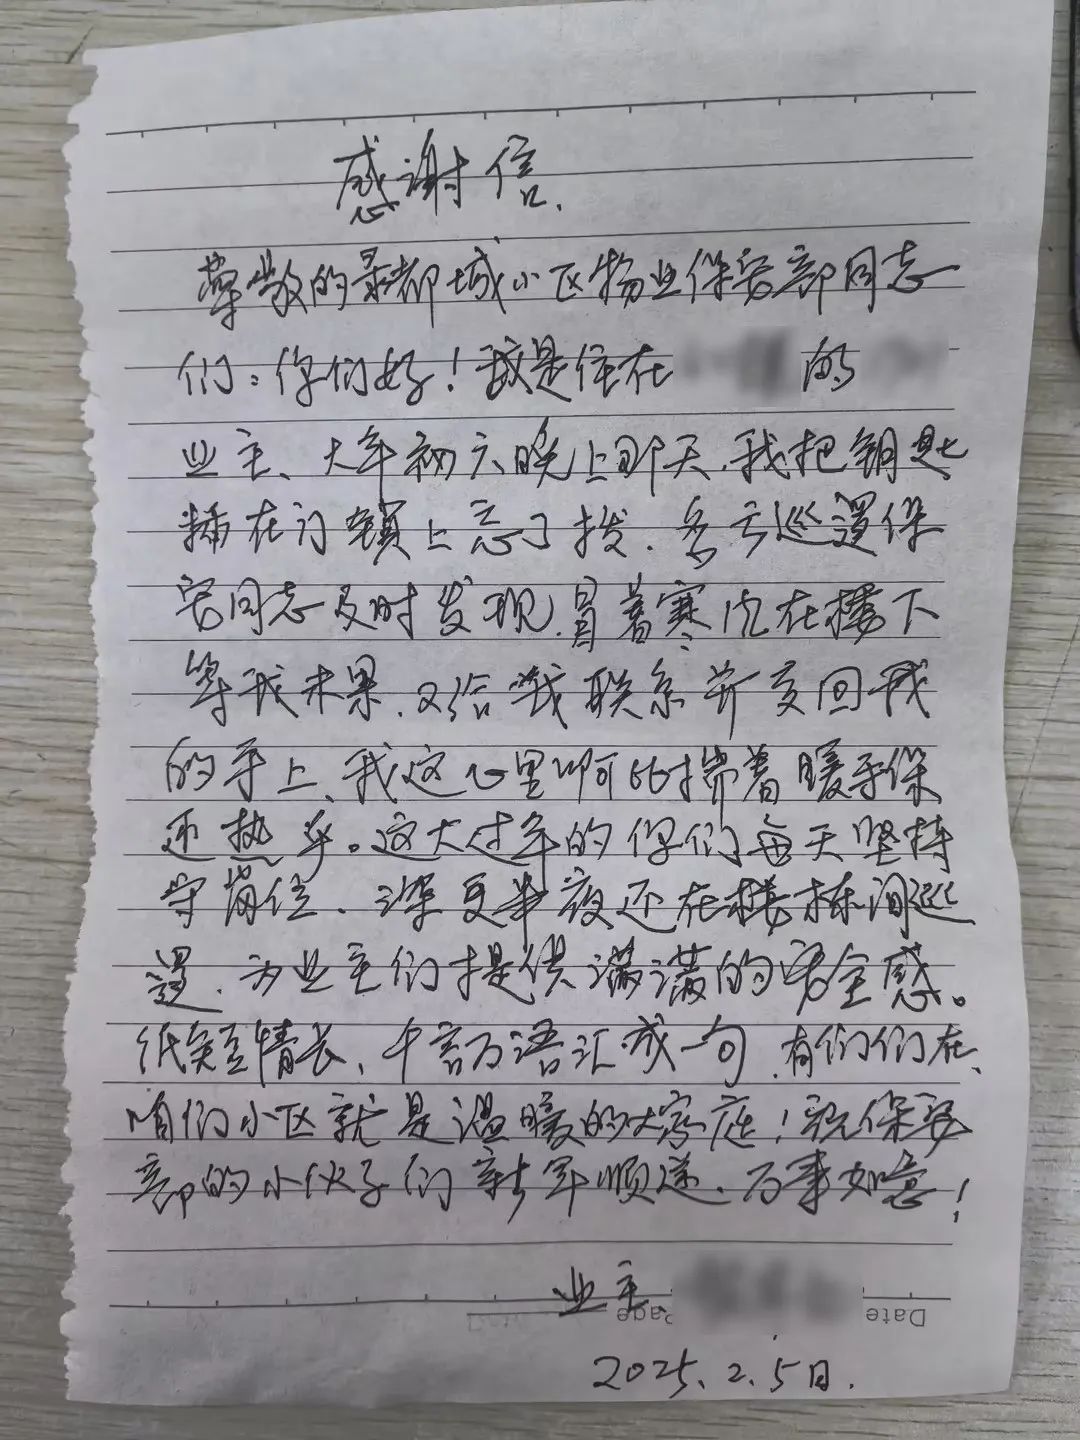 感谢信.
尊敬的景都城小区物业保安部同志
们：你们好！我是住在 的
业主、大年初六晚上那天，我把钥匙
插在门锁上忘了拔．多亏巡逻保
安同志及时发现，冒着寒风在楼下
等我未果．又给我联系并交回我
的手上、我这心里啊比揣着暖手保
还热乎。这大过年的你们每天坚持
守岗位．深更半夜还在楼栋间巡
逻．为业主们提供满满的安全感。
纸短情长、千言万语汇成一句．有们们在、
咱们小区就是温暖的大家庭！祝保安
部的小伙子们新年顺遂．万事如意！
业主
Page
Date
2025.2.5日.